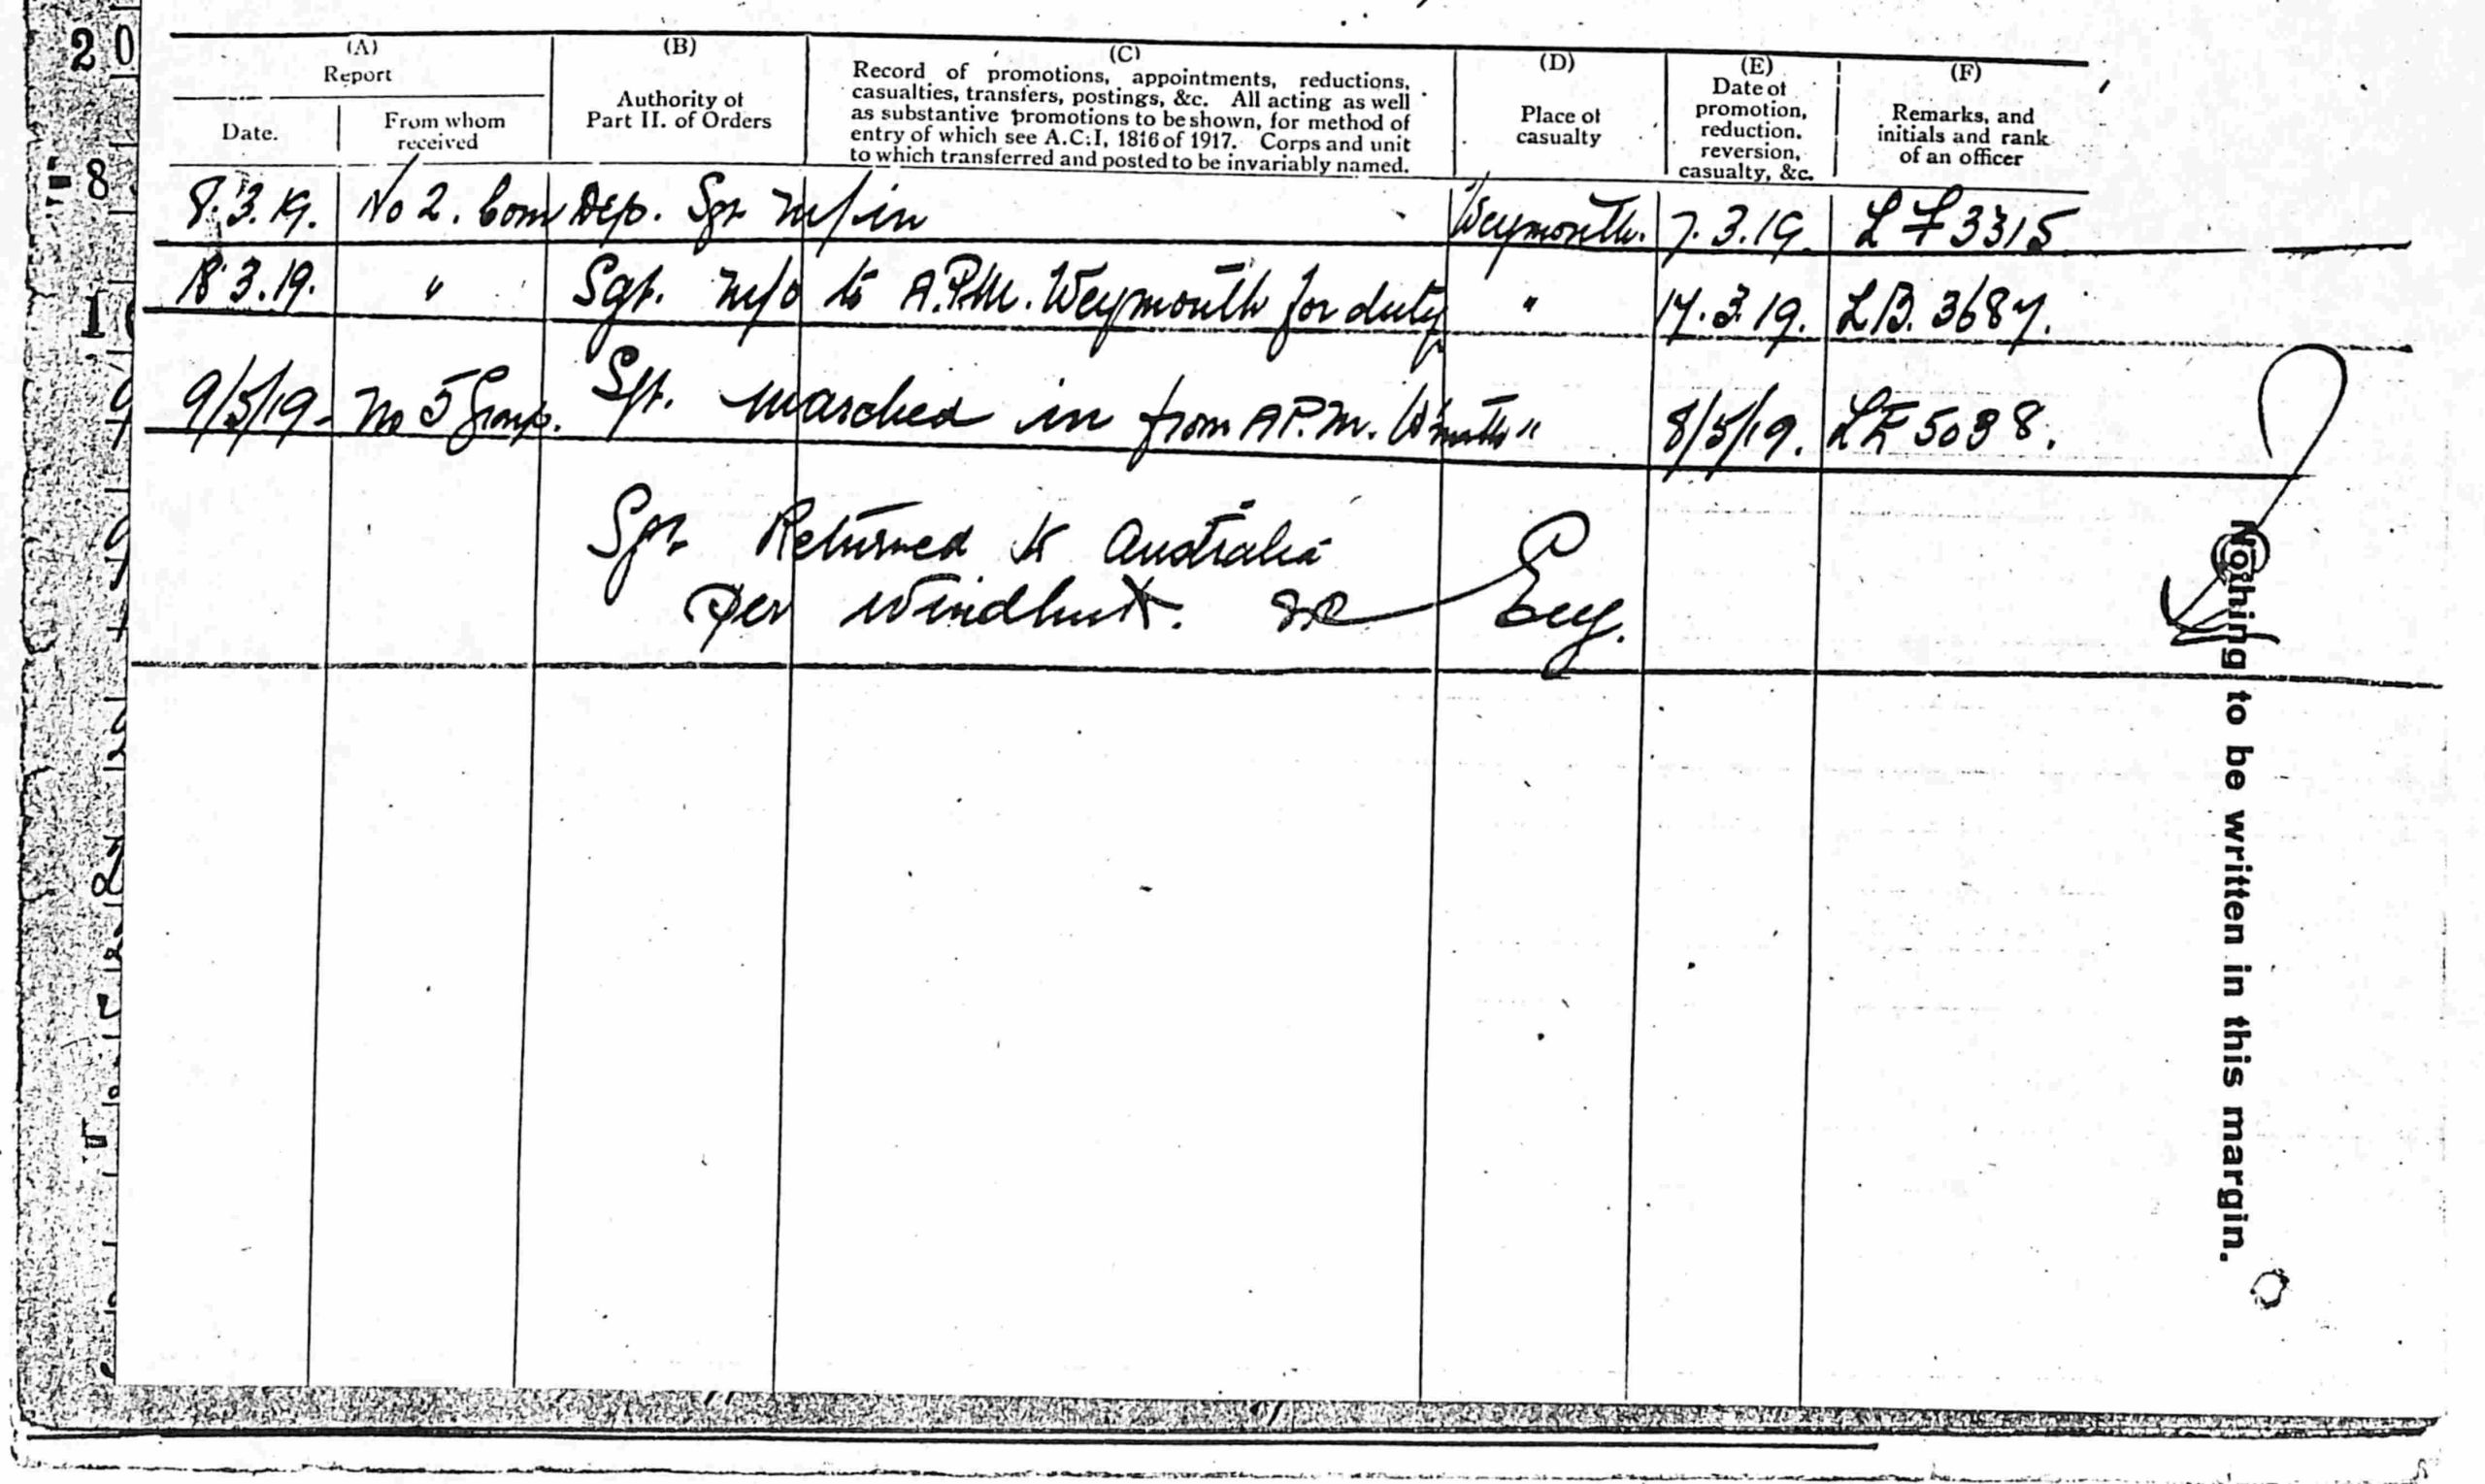 20
(A)
Report
Date.
From whom
received
(B)
Authority of
Part II. of Orders
(C)
Record of promotions, appointments, reductions,
casualties, transfers, postings, &c. All acting as well
as substantive promotions to be shown, for method of
entry of which see A.C.I, 1816 of 1917. Corps and unit
to which transferred and posted to be invariably named.
(D)
Place of
casualty
(E)
Date of
promotion,
reduction,
reversion,
casualty, &c.
(F)
Remarks, and
initials and rank
of an officer
8
8.3.19. No 2. Com Dep. Sgt M/in Weymouth. 7.3.19. LF 3315
18.3.19. " Sgt. M/o to A.P.M. Weymouth for duty " 17.3.19. LB. 3687.
9/5/19 - No 5 Group. Sgt. marched in from A.P.M. W'mouth " 8/5/19. LF 5038.
Sgt Returned to Australia
per Windhuk.
Nothing to be written in this margin.